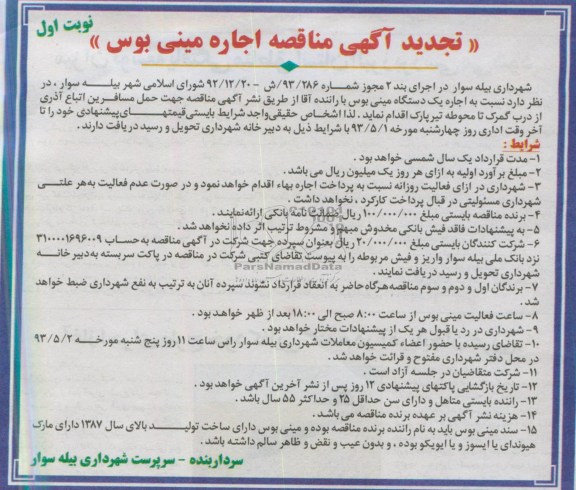 نوبت اول
« تجدید آگهی مناقصه اجاره مینی بوس »
شهرداری بیله سوار در اجرای بند ۲ مجوز شماره ۹۳/۲۸۶/ش - ۹۲/۱۲/۲۰ شورای اسلامی شهر بیله سوار ، در
نظر دارد نسبت به اجاره یک دستگاه مینی بوس با راننده آقا از طریق نشر آگهی مناقصه جهت حمل مسافرین اتباع آذری
از درب گمرک تا محوطه تیر پارک اقدام نماید . لذا اشخاص حقیقی واجد شرایط بایستی قیمتهای پیشنهادی خود را تا
آخر وقت اداری روز چهارشنبه مورخه ۹۳/۵/۱ با شرایط ذیل به دبیر خانه شهرداری تحویل و رسید دریافت دارند .
شرایط :
۱- مدت قرارداد یک سال شمسی خواهد بود .
۲- مبلغ بر آورد اولیه به ازای هر روز یک میلیون ریال می باشد .
۳- شهرداری در ازای فعالیت روزانه نسبت به پرداخت اجاره بهاء اقدام خواهد نمود و در صورت عدم فعالیت به هر علتی
شهرداری مسئولیتی در قبال پرداخت کارکرد ، نخواهد داشت .
۴- برنده مناقصه بایستی مبلغ ۱۰۰/۰۰۰/۰۰۰ ریال ضمانت نامه بانکی ارائه نمایند .
۵- به پیشنهادات فاقد فیش بانکی مخدوش مبهم و مشروط ترتیب اثر داده نخواهد شد .
۶- شرکت کنندگان بایستی مبلغ ۲۰/۰۰۰/۰۰۰ ریال بعنوان سپرده جهت شرکت در آگهی مناقصه به حساب ۳۱۰۰۰۰۱۶۹۶۰۰۹
نزد بانک ملی بیله سوار واریز و فیش مربوطه را به پیوست تقاضای کتبی شرکت در مناقصه در پاکت سر بسته به دبیر خانه
شهرداری تحویل و رسید دریافت نمایند .
۷- برندگان اول و دوم و سوم مناقصه هرگاه حاضر به انعقاد قرارداد نشوند سپرده آنان به ترتیب به نفع شهرداری ضبط خواهد
شد .
۸- ساعت فعالیت مینی بوس از ساعت ۸:۰۰ صبح الی ۱۸:۰۰ بعد از ظهر خواهد بود .
۹- شهرداری در رد یا قبول هر یک از پیشنهادات مختار خواهد بود .
۱۰- تقاضای رسیده با حضور اعضاء کمیسیون معاملات شهرداری بیله سوار راس ساعت ۱۱ روز پنج شنبه مورخه ۹۳/۵/۲
در محل دفتر شهرداری مفتوح و قرائت خواهد شد .
۱۱- شرکت متقاضیان در جلسه آزاد است .
۱۲- تاریخ بازگشایی پاکتهای پیشنهادی ۱۲ روز پس از نشر آخرین آگهی خواهد بود .
۱۳- راننده بایستی متاهل و دارای سن حداقل ۲۵ و حداکثر ۵۵ سال باشد .
۱۴- هزینه نشر آگهی بر عهده برنده مناقصه می باشد .
۱۵- سند مینی بوس باید به نام راننده برنده مناقصه بوده و مینی بوس دارای ساخت تولید بالای سال ۱۳۸۷ دارای مارک
هیوندای یا ایسوز و یا ایویکو بوده ، و بدون عیب و نقض و ظاهر سالم داشته باشد .
سرداربنده - سرپرست شهرداری بیله سوار
ParsNamadData